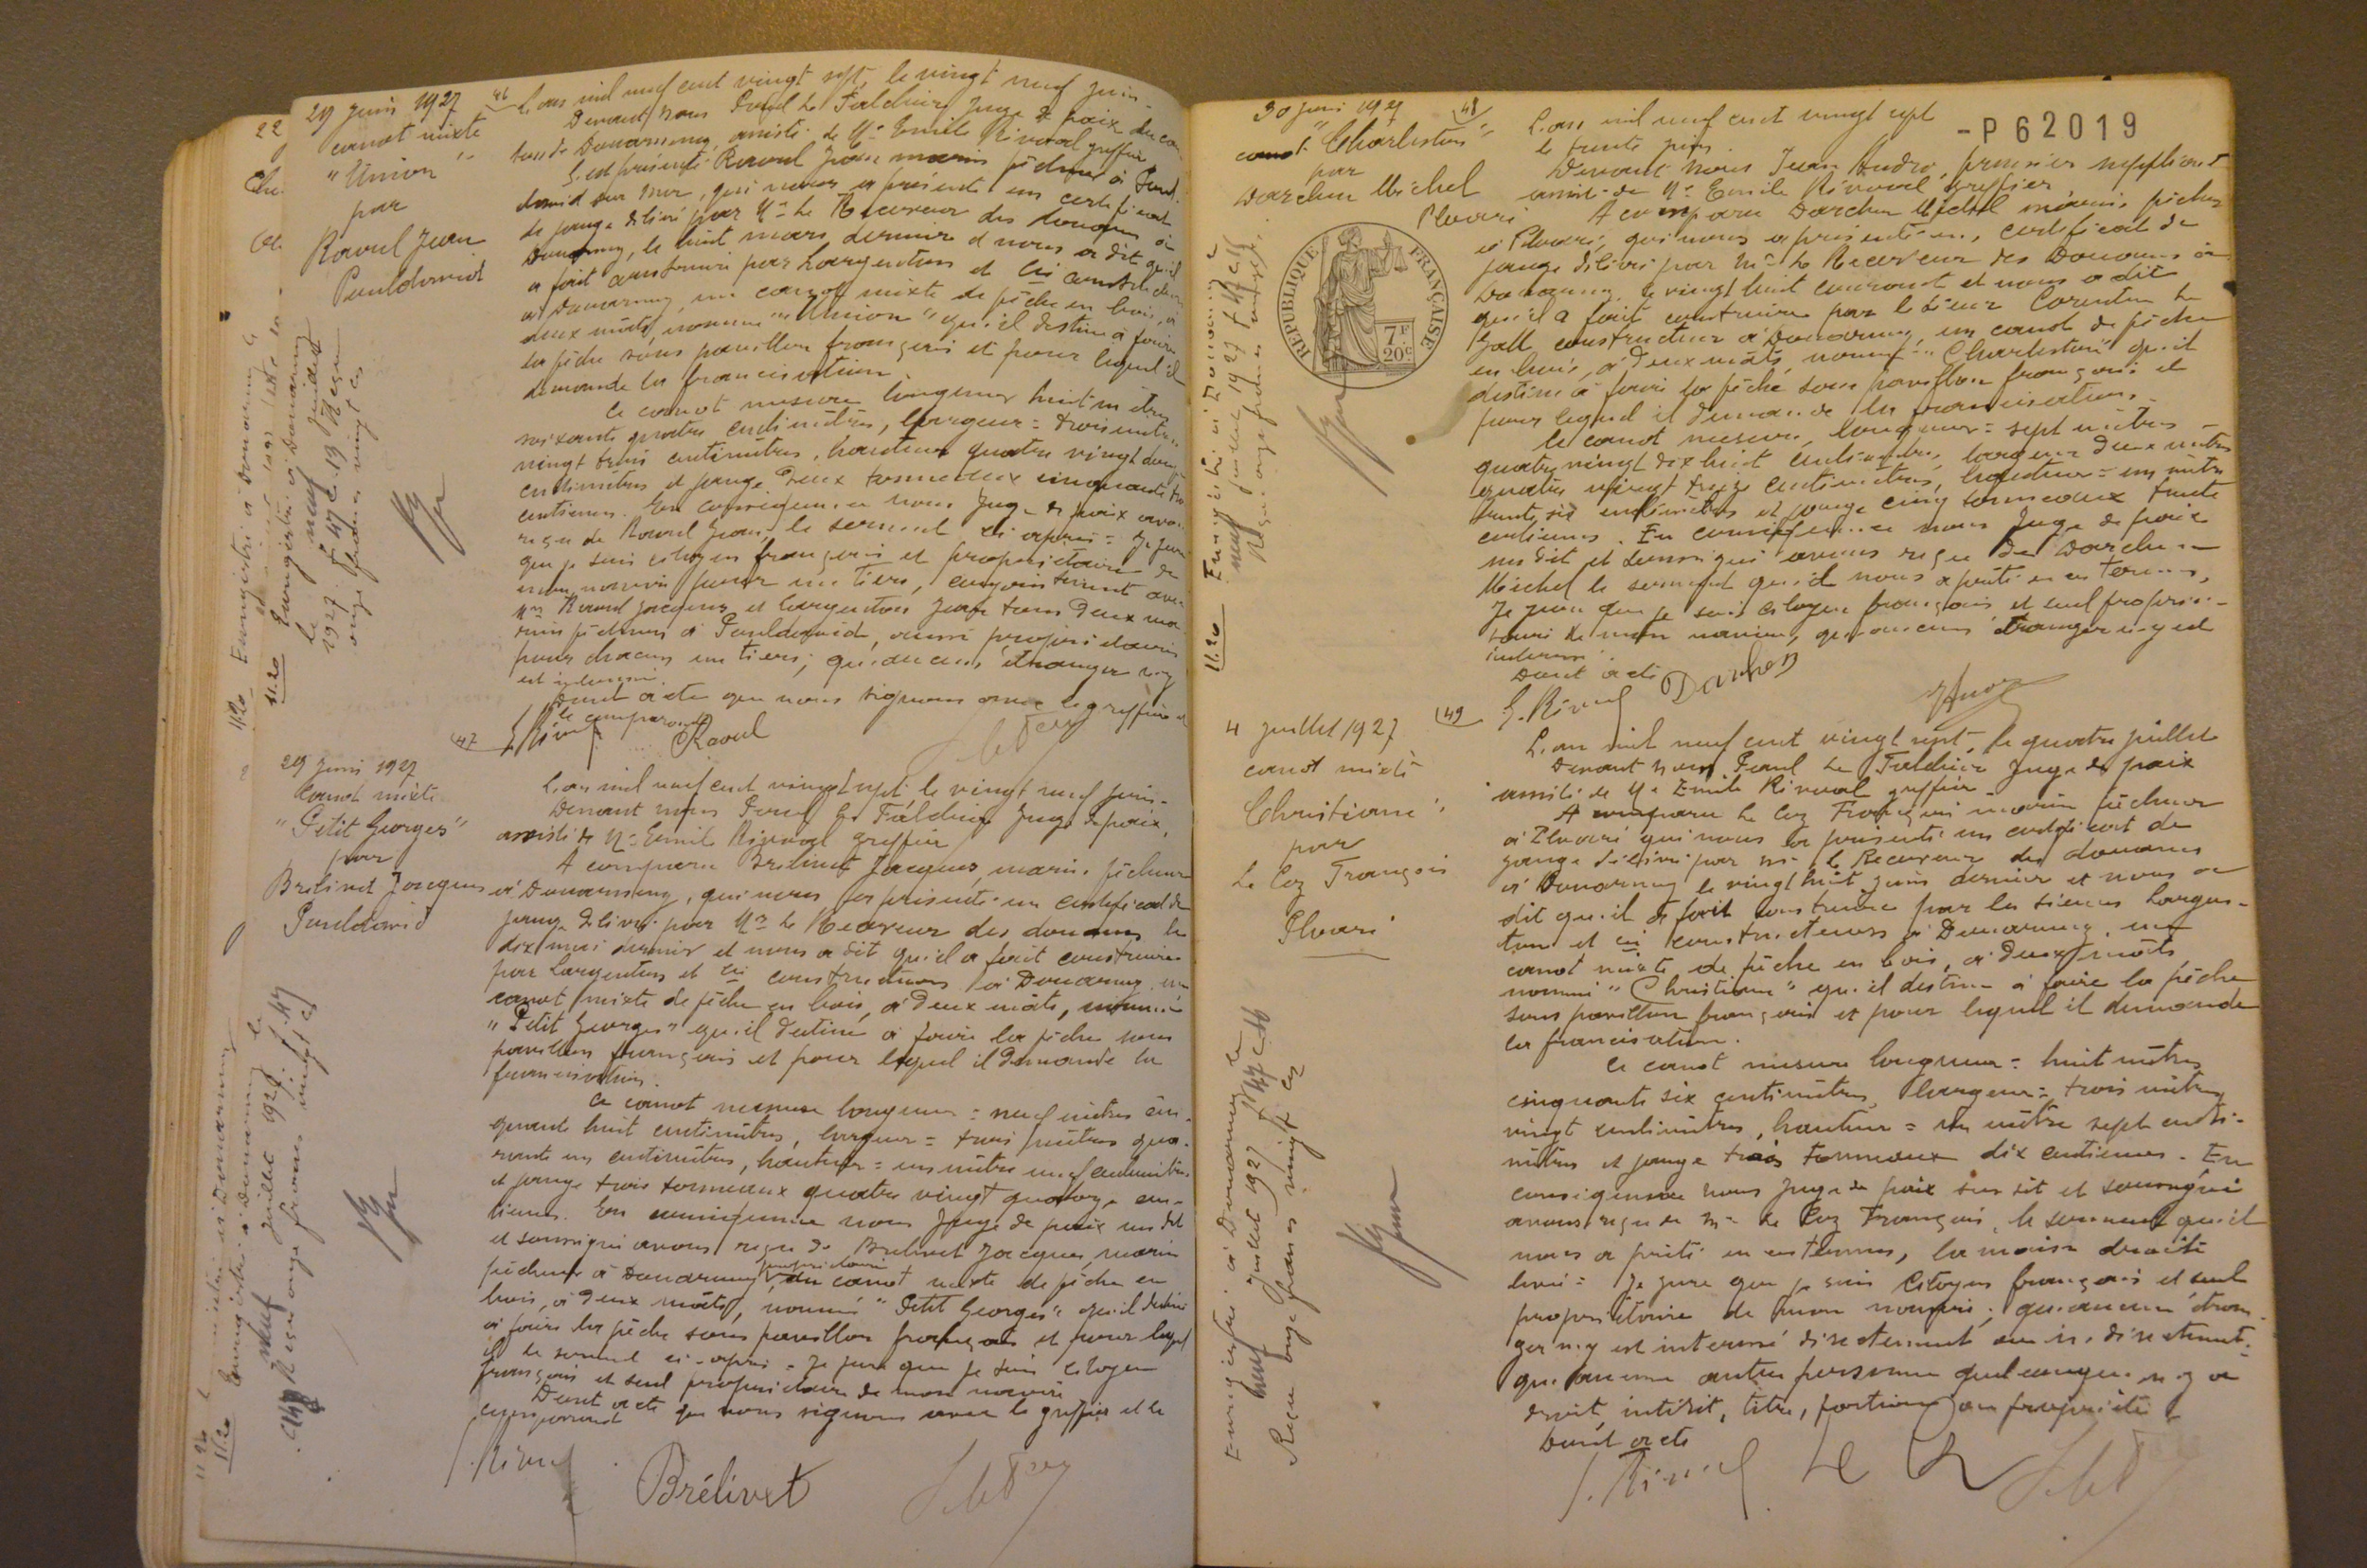 29 juin 1927
canot mixte
"Union"
par
Raoul Jean
Pouldavid
46
L'an mil neuf cent vingt sept, le vingt neuf juin.
Devant nous Paul Le Faldeur Juge de paix du can-
ton de Douarnenez, assisté de Me Emile Rivoal greffier
S'est présenté Raoul Jean marin pêcheur à Pould-
david sur mer, qui nous a présenté un certificat
de jauge délivré par Mr le Receveur des douanes à
Douarnenez, le huit mars dernier et nous a dit qu'il
a fait construire par Largenton et Cie constructeurs
à Douarnenez, un canot mixte de pêche en bois, à
deux mâts, nommé "Union" qu'il destine à faire
la pêche sous pavillon français et pour lequel il
demande la francisation.
Ce canot mesure longueur huit mètres
soixante quatre centimètres, largeur = trois mètres
vingt trois centimètres, hauteur quatre vingt douze
centimètres et jauge deux tonneaux cinquante
centièmes. En conséquence nous Juge de paix avons
reçu de Raoul Jean, le serment ci après = Je jure
que je suis citoyen français et propriétaire de
mon navire pour un tiers, conjointement avec
Mrs Raoul Jacques et Largenton Jean tous deux ma-
rins pêcheurs à Pouldavid, aussi propriétaires
pour chacun un tiers; qu'aucun étranger n'y
est intéressé.
Dont acte que nous signons avec le greffier et
le comparant
E. Rivoal Raoul
29 juin 1927
Canot mixte
"Petit Georges"
par
Brélivet Jacques
Pouldavid
47
L'an mil neuf cent vingt sept le vingt neuf juin.
Devant nous Paul Le Faldeur Juge de paix,
assisté de Me Emile Rivoal greffier
A comparu Brélivet Jacques, marin pêcheur
à Douarnenez, qui nous a présenté un certificat de
jauge délivré par Mr le Receveur des douanes le
dix mai dernier et nous a dit qu'il a fait construire
par Largenton et Cie constructeurs à Douarnenez un
canot mixte de pêche en bois, à deux mâts, nommé
"Petit Georges" qu'il destine à faire la pêche sous
pavillon français et pour lequel il demande la
francisation.
Ce canot mesure longueur = neuf mètres cin-
quante huit centimètres, largeur = trois mètres qua-
rante un centimètres, hauteur = un mètre neuf centimètres
et jauge trois tonneaux quatre vingt quatorze cen-
tièmes. En conséquence nous Juge de paix susdit
et soussigné avons reçu de Brélivet Jacques, marin
pêcheur à Douarnenez, propriétaire du canot mixte de pêche en
bois, à deux mâts, nommé "Petit Georges" qu'il destine
à faire la pêche sous pavillon français et pour lequel
il le serment ci-après = Je jure que je suis citoyen
français et seul propriétaire de mon navire
Dont acte que nous signons avec le greffier et le
comparant
E. Rivoal Brélivet
Enregistré à Douarnenez le
neuf juillet 1927
Reçu onze francs vingt cs
11.20
30 juin 1927
canot "Charleston"
par
Darchen Michel
Ploaré
48
-P 62019
RÉPUBLIQUE FRANÇAISE
7F
20c
L'an mil neuf cent vingt sept
le trente juin.
Devant nous Jean Andro, premier suppléant
assisté de Me Emile Rivoal greffier
A comparu Darchen Michel marin pêcheur
à Ploaré, qui nous a présenté un certificat de
jauge délivré par Mr le Receveur des Douanes à
Douarnenez, le vingt huit courant et nous a dit
qu'il a fait construire par le sieur Corentin Le
Gall constructeur à Douarnenez, un canot de pêche
en bois, à deux mâts, nommé "Charleston" qu'il
destine à faire la pêche sous pavillon français et
pour lequel il demande la francisation.
Ce canot mesure, longueur = sept mètres
quatre vingt dix huit centimètres, largeur deux mètres
quatre vingt treize centimètres, hauteur = un mètre
trente six centimètres et jauge cinq tonneaux trente
centièmes. En conséquence nous Juge de paix
susdit et soussigné avons reçu de Darchen
Michel le serment qu'il nous a prêté en ces termes,
Je jure que je suis citoyen français et seul proprié-
taire de mon navire, qu'aucun étranger n'y est
intéressé.
Dont acte
E. Rivoal Darchen
4 juillet 1927
canot mixte
Christiane"
par
Le Coz François
Ploaré
49
L'an mil neuf cent vingt sept, le quatre juillet
Devant nous Paul Le Faldeur Juge de paix
assisté de Me Emile Rivoal greffier
A comparu Le Coz François marin pêcheur
à Ploaré qui nous a présenté un certificat de
jauge délivré par Mr le Receveur des douanes
à Douarnenez le vingt huit juin dernier et nous a
dit qu'il a fait construire par les sieurs Largen-
ton et Cie constructeurs à Douarnenez, un
canot mixte de pêche en bois, à deux mâts
nommé "Christiane" qu'il destine à faire la pêche
sous pavillon français et pour lequel il demande
la francisation.
Ce canot mesure longueur = huit mètres
cinquante six centimètres, largeur = trois mètres
vingt centimètres, hauteur = un mètre sept centi-
mètres et jauge trois tonneaux dix centièmes. En
conséquence nous Juge de paix sus dit et soussigné
avons reçu de Mr Le Coz François, le serment qu'il
nous a prêté en ces termes, la main droite
levée = Je jure que je suis citoyen français et seul
propriétaire de mon navire; qu'aucun étran-
ger n'y est intéressé directement ou indirectement;
que aucune autre personne quelconque n'y a
droit, intérêt, titre, portion ou propriété
Dont acte
E. Rivoal Le Coz
Enregistré à Douarnenez le
neuf juillet 1927
Reçu onze francs vingt cs